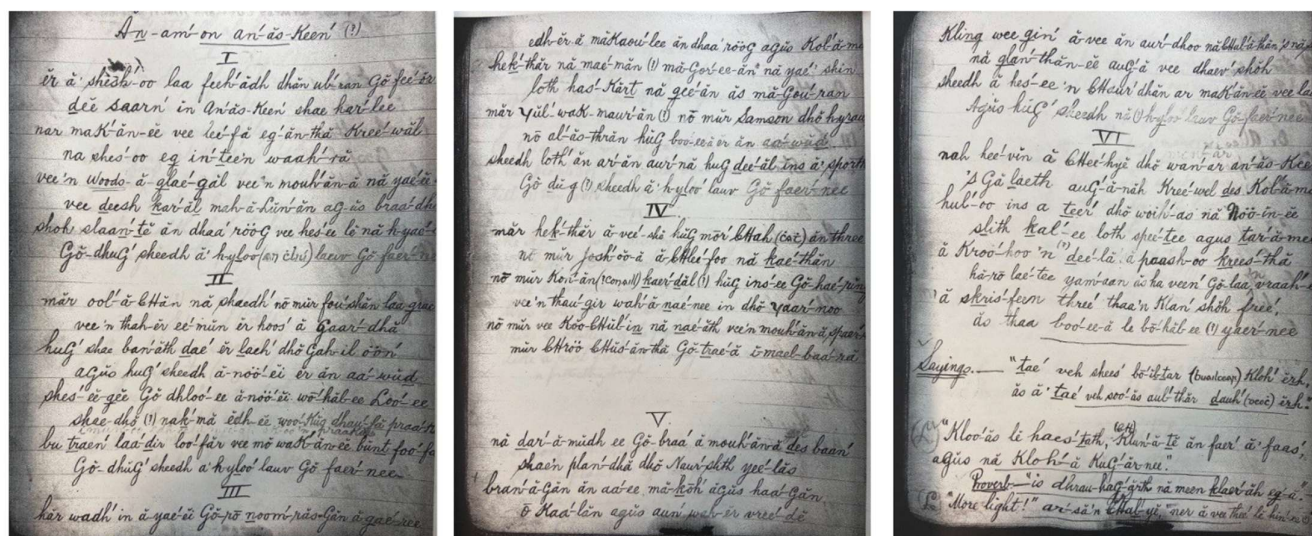 An-am´-on an´-ás-Keen´ (?)
I
ĕr ă´ shĕsh´-oo laa feeh´-ădh dhăn ub´-ran Gŏ fee´-ĕr
dĕĕ saarn´ in An´-ăs-Keen´ shae kăr´-lee
nar maK´-ăn-ĕĕ vee lee´-fă eg´-ăn-thă Kree´-wăl
na shes´-oo eg in´-teen´ waah´-ră
vee´n Woods´-ă-glae´-găl vee´n mouh´-ăn-ă nă yae´-ĕĕ
vee deesh kăr´-ăl mah-ă-Lŭn´-ăn ag-ŭs braa´-dh
shoh slaan´-tĕ ăn dhaa´ rŏŏg vee hes´-ĕĕ lĕ nă h-yae´
Gŏ-dhŭG´ sheedh ă´ hyloo lauv Gŏ faer´-nee
II
măr ool´-ă-CHăn nă shaedh´ nŏ mŭr fou´-shăn laa grae
vee´n thah-ĕr ĕĕ´-mŭn ĕr hoos´ ă Gaar´-dhă
hŭG´ shae ban´-ăth dae´ ĕr laeh´ dhŏ Gah-il ŏŏn´
agŭs hŭG´ sheedh ă-nŏŏ´-ĕĕ er ăn aa´-wŭd
shĕs´-ĕĕ-gĕĕ Gŏ dhloo´-ĕĕ ă-nŏŏ´-ĕĕ wŏ´-hăb-ĕĕ Loo´-ĕĕ
shae-dhŏ (?) nak´-mă ĕdh-ĕĕ woo´-Kŭg dhau´-fă
bu traen´ laa´-dir loo´-făr vee mŏ waK´-ăn-ĕĕ bŭnt foo´-fă
Gŏ-dhŭG´ sheedh a´ hyloo´ lauv Gŏ faer´-nee
III
hăr wadh´ in ă yae´-ĕĕ Gŏ-rŏ noom´-răs-Găn ă gae´-ree
edh-ĕr-ă măKaou´-lee ăn dhaa´ rŏŏg agŭs Kol´-ă-m
hek´-thăr nă mae´-măn (?) mă-Gor´-ee-ăn´ nă yae´ shin
loth has´-Kărt nă gee-ăn ăs mă-Gou´-ran
măr Yŭl´-waK-maur´-ăn (?) nŏ mŭr Samson dhŏ hyrau
nŏ al´-ăs-thrăn hŭG boo-ĕĕ-ă ĕr ăn aa´-wŭd
sheedh loth´ ăn ar´-ăn aur´-nă hŭG dee´-ăl ins ă´ sporth
Gŏ dŭg (?) sheedh ă´ hyloo lauv Gŏ faer-nee
IV
măr hek´-thăr ă-vee´-shĕ hŭG mŏr´ CHah ăn three
nŏ mŭr josh´-ŏŏ-ă ă-CHee-foo nă kae´-thăn
nŏ mŭr Kon´-ăn (?Conall) kaer´-dăl (?) hŭG ins-ee Gŏ-hae´-ring
vee´n thau´-gir wah´-ă nae´-nee in dhŏ Yaar´-noo
nŏ mŭr vee Koo-CHŭl´-in nă nae´-ăth vee´n mouh´-ăn-ă
mŭr CHrŏŏ CHŭs´-ăn-thă Gŏ-trae´-ă ĭ-mael-baa´-ră
V
nă dar´-ă-mŭdh ee Gŏ-braa´ ă mouh´-ăn-ă des baan´
shaen plan´-dhă dhŏ Naur´-shth yee´-lăs
bran´-ă-Găn ăn aa´-ee, mă-kŏh´ ăgŭs haa´-Găn
ŏ Kaa´-lăn agŭs aun´ wah-ĕr vree´-dŏ
Kling wee gin´ ă-vee ăn aur´-dhoo
nă glan´-thăn-ĕĕ auG´-ă vee dhaev´ shŏh
sheedh ă hes´-ĕĕ´n CHaur´dhăn ar maK´-ăn-ĕĕ vee
Agŭs hŭG´ sheedh nă (?) hyloo lauv Gŏ-faer-nee
VI
nah hee´-vin ă CHee´-hyă dhŏ wan´-ar an´-ăs-Kee
´s Gă laeth auG´-ă-năh Kree´-wel des Kol´-ă-m
hul´-oo ins a teer´ dhŏ woih´-as nă Nŏŏ-ĭn-ĕĕ
slith kal´-ee loth spee´-tee agus tar´-ă-me
ă Kroo´-hoo´n (?) dee´-lă ă paash-oo krees´-thă
hă-rŏ lee´-tee yam´-aan ăs ha veen´ Gŏ-laa vraah´
´ă skris´-feen three´ thaa´n Klan´ shŏh free´
ăs thaa boo´-ĕĕ-ă le bŏ´-hăb-ĕĕ (?) yaer´-nee
Sayings.— "tae´ veh shees´ bŏ´-ĭb-tar (buailcear) Kloh´ ĕrh
ăs ă´ tae´ veh soo´-ăs aub´-thăr dauh´ ĕrh"
"Kloo´-ăs lĕ haes´-tath, Klŭn´-ă-tĕ ăn faer´ ă´ faas,
agŭs nă Kloh´-ă KuG´-ăr-nee."
Proverb— is dhrau-hăG´-ărth nă meen klaer´-ăh eg-ă
"More light!" ar´-să´n CHal´-yĕ, ner ă vee thee´ lĕ